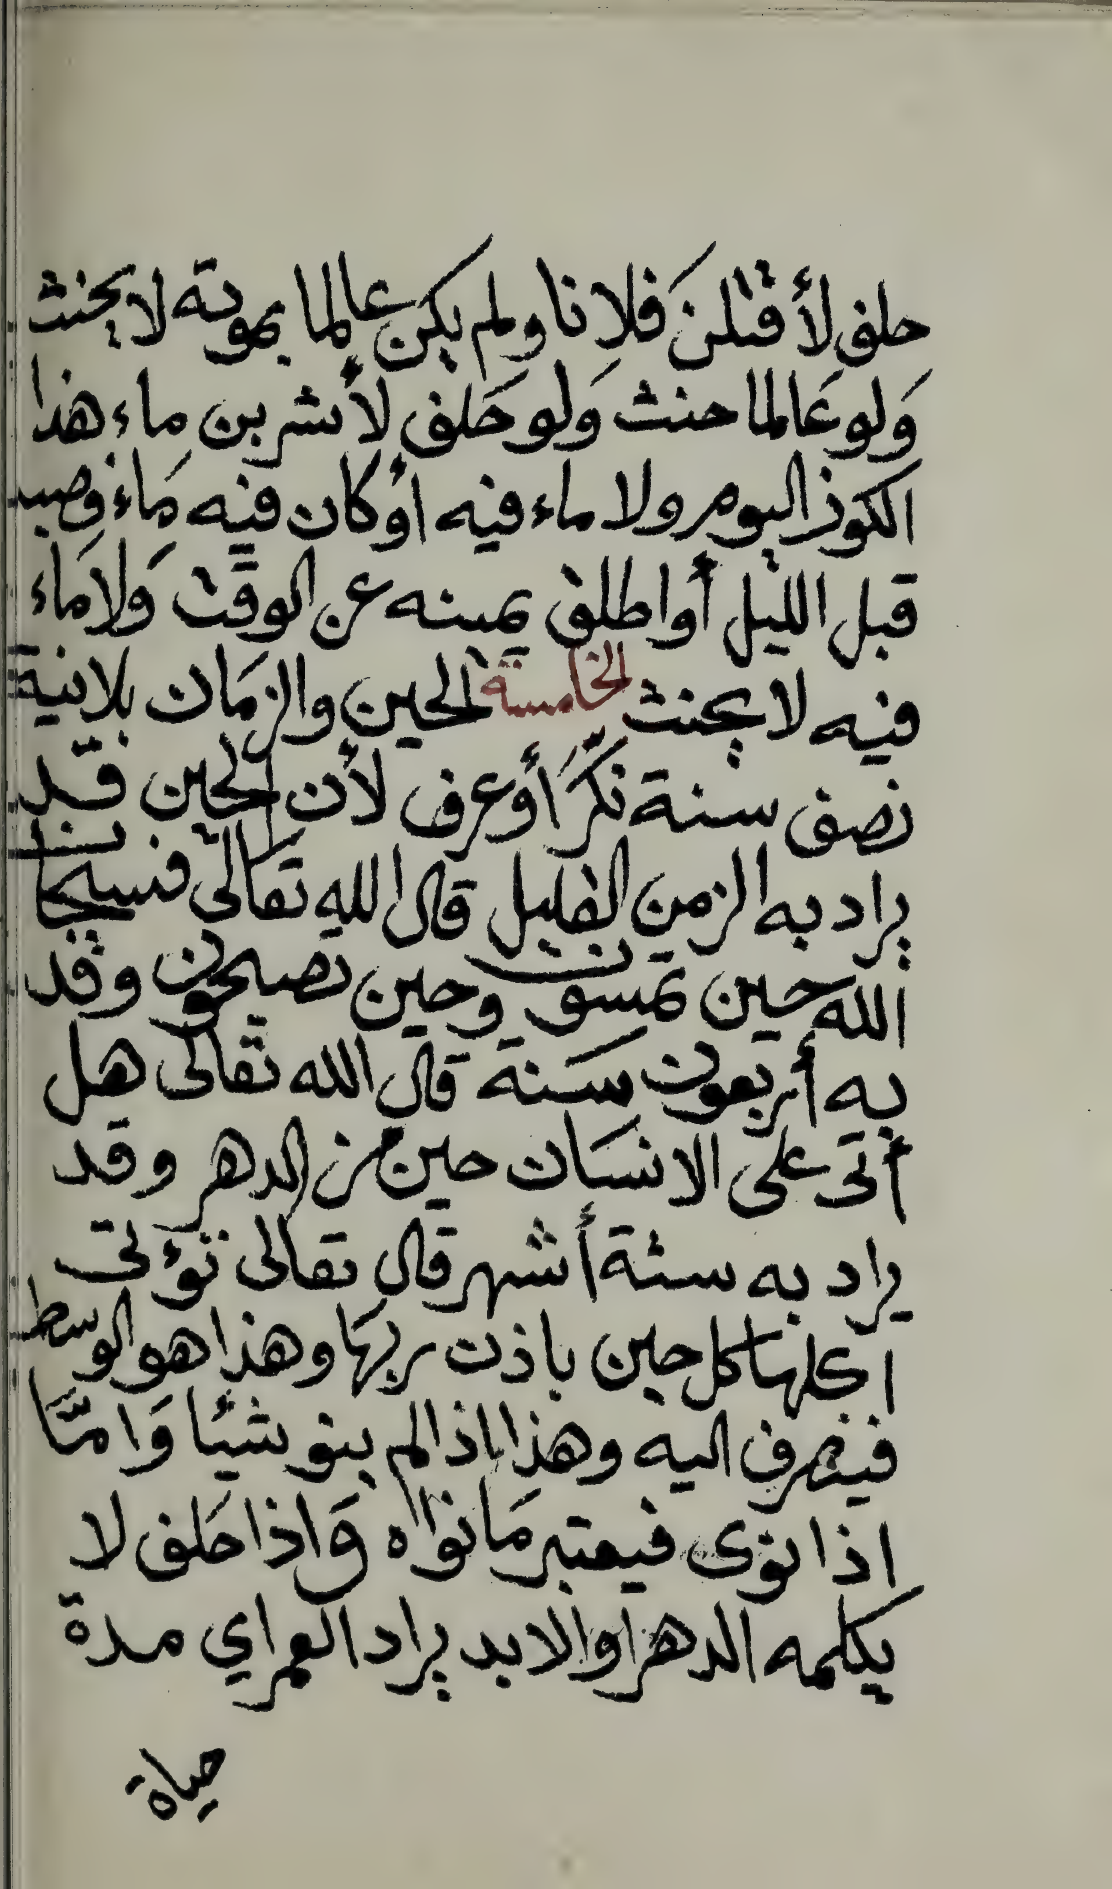 حلف لأقتلنَ فلانا ولم يكن عالما بموته لا يحنث
وَلو عَالما حنث وَلو حَلف لأشربن ماء هذا
الكوز اليوم ولا ماء فيه أو كان فيه مَاء وصب
قبل الليل أو اطلق يمينه عن الوقت وَلا مَاء
فيه لا يحنث الخامسة الحين والزمَان بلا نية
نصف سنة نكّرَ أو عرف لأن الحين قد
يراد به الزمن القليل قال الله تعَالى فسبحان
الله حين تمسون وحين تصبحون وقد
به أربعون سَنة قال الله تعَالى هل
أتى على الانسَان حين من الدهر وقد
يراد به ستة أشهر قال تعالى تؤتى
اكلها كل حين باذن ربهَا وهذا هو الوسط
فينصرف اليه وهذا اذا لم ينو شيئا وَامَّا
اذا نوى فيعتبر مَا نوَاه وَاذا حَلف لا
يكلمه الدهر او الابد يراد العمر اي مدة
حياة